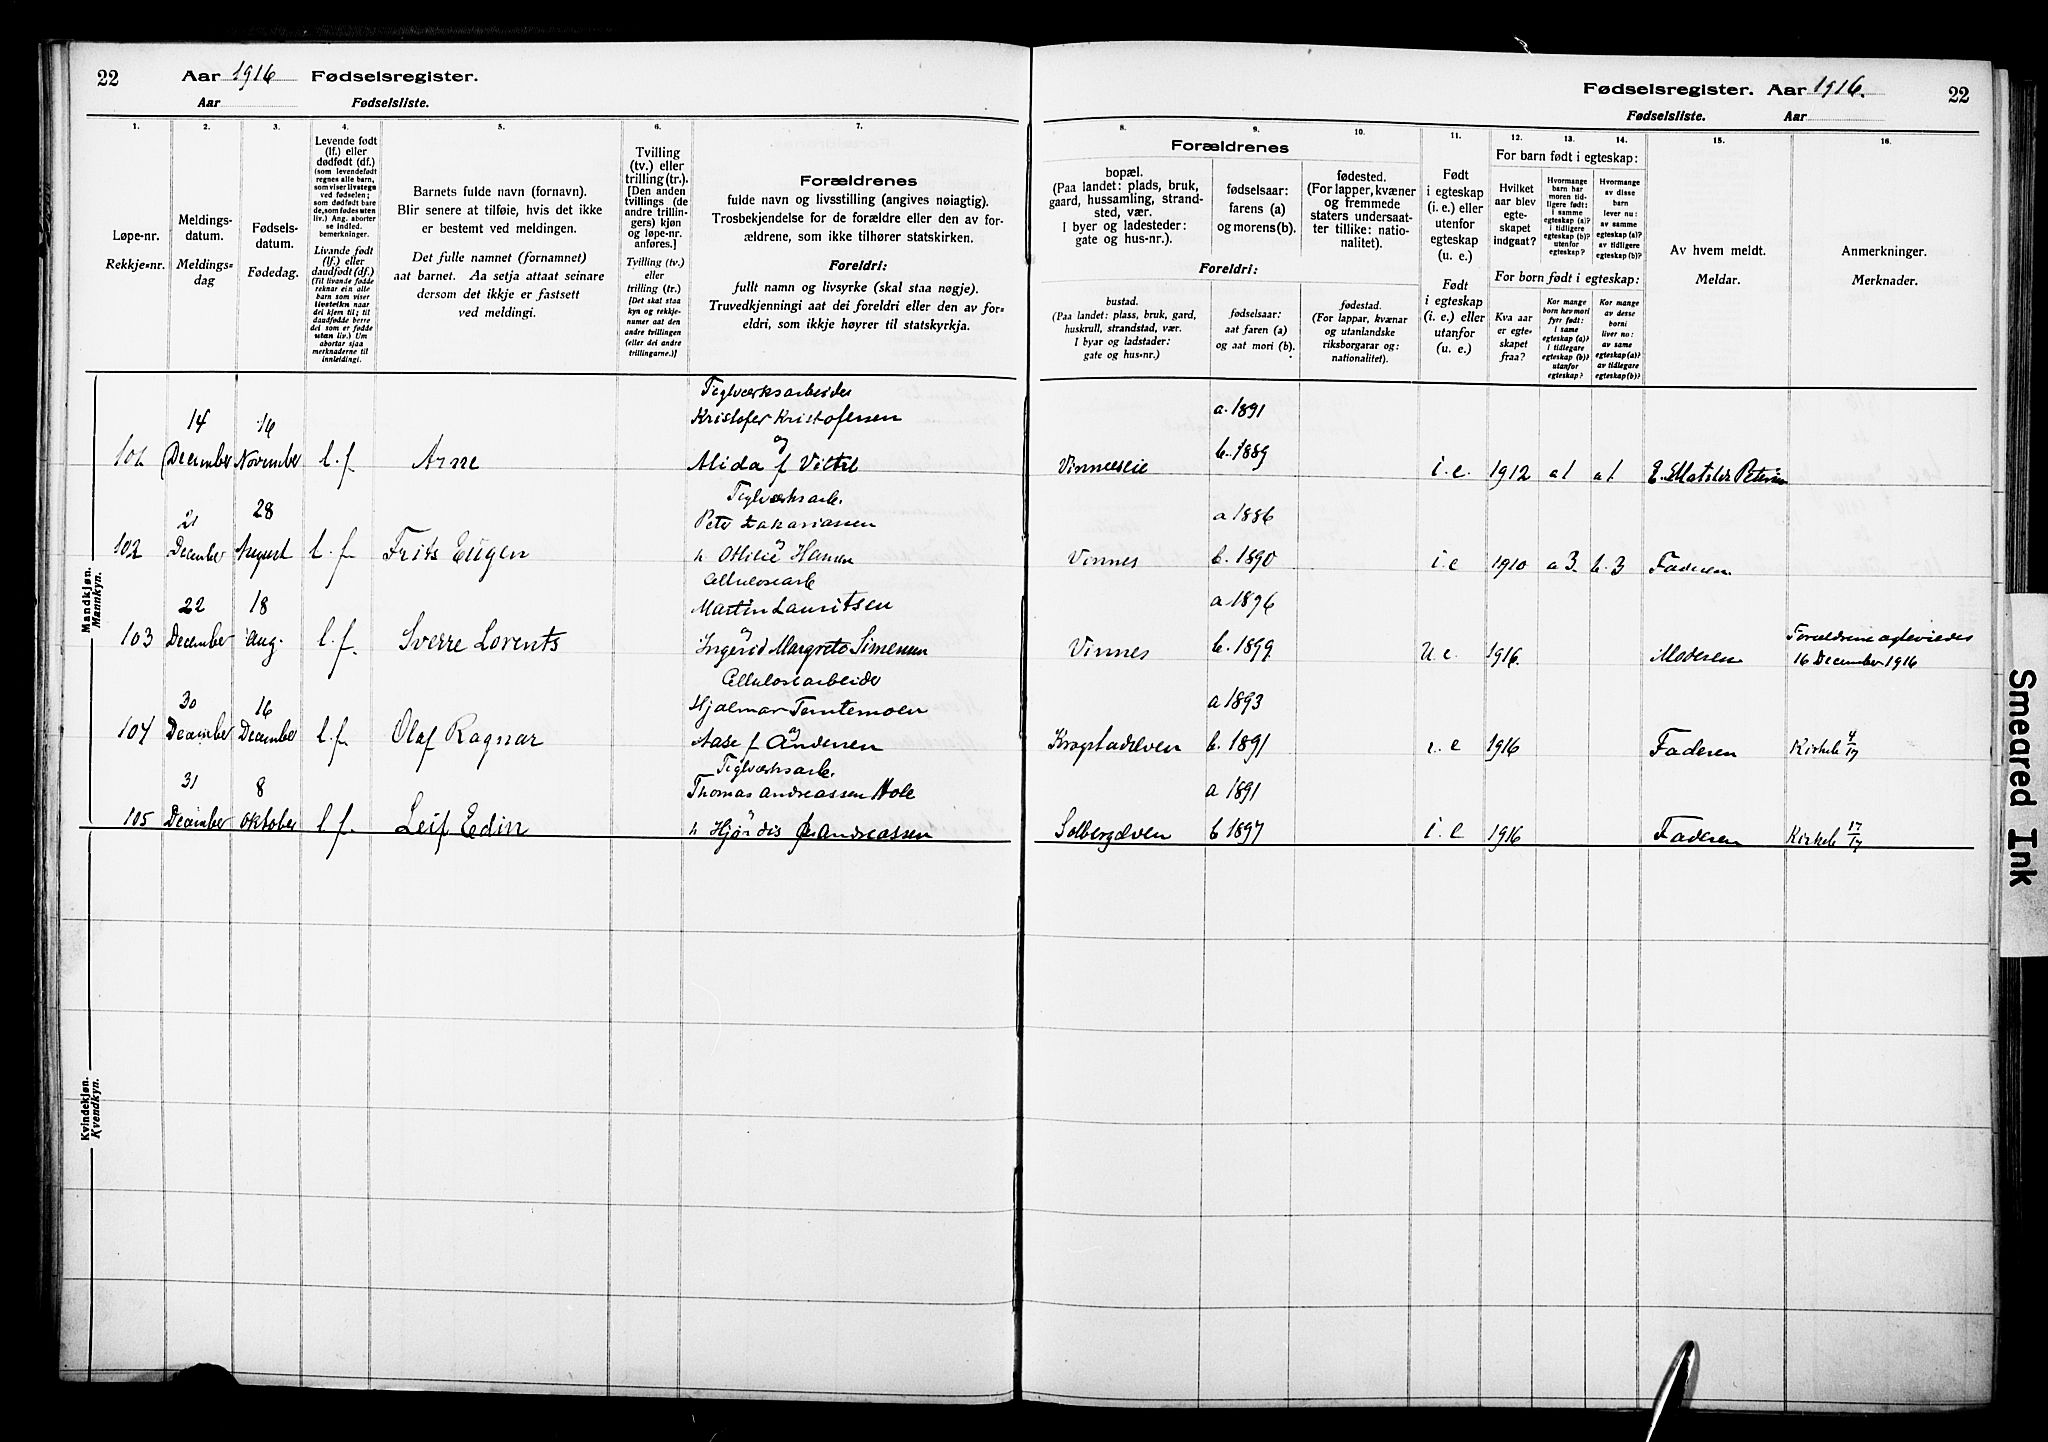 22 Aar 1916 Fødselsregister.
Aar Fødselsliste.
1. 2. 3. 4. 5. 6. 7.
Løpe-nr.
Rekkje-nr.
Meldings-
datum.
Meldings-
dag
Fødsels-
datum.
Fødedag.
Levende født
(lf.) eller
dødfødt (df.)
(som levendefødt
regnes alle barn,
som viser livstegn
ved fødselen;
som dødfødt bare
de, som fødes uten
liv.) Ang. aborter
se indled.
bemerkninger.
Livande født
(lf.) eller
daudfødt (df.)
(Til livande fødde
reknar ein alle
barn som viser
livsteikn naar
dei kjem til; til
daudfødde berre
dei som er fødde
utan liv.) Um
abortar sjaa
merknaderne til
innleidingi.
Barnets fulde navn (fornavn).
Blir senere at tilføie, hvis det ikke
er bestemt ved meldingen.
Det fulle namnet (fornamnet)
aat barnet. Aa setja attaat seinare
dersom det ikkje er fastsett
ved meldingi.
Tvilling
(tv.) eller
trilling (tr.).
[Den anden
tvillings (de
andre trillin-
gers) kjøn
og løpe-nr.
anføres.]
Tvilling (tv.)
eller
trilling (tr.)
[Det skal staa
kyn og rekkje-
numer aat den
andre tvillingen
(eller dei andre
trillingarne.)]
Forældrenes
fulde navn og livsstilling (angives nøiagtig).
Trosbekjendelse for de forældre eller den av for-
ældrene, som ikke tilhører statskirken.
Foreldri:
fullt namn og livsyrke (skal staa nøgje).
Truvedkjenningi aat dei foreldri eller den av for-
eldri, som ikkje høyrer til statskyrkja.
Mandkjøn.
Mannkyn.
Teglværksarbeider
14 16 Kristofer Kristofersen
og
101 December November l.f. Arne Alida f
Teglværksarb.
21 28 Peter Zakariassen
og
102 December August l.f. Frits Eugen h Ottilie Hansen
Cellulosearb
22 18 Martin Lauritsen
og
103 December aug. l.f. Sverre Lorents Ingerid Margrete Simensen
Cellulosearbeider
30 16 Hjalmar
og
104 December December l.f. Olaf Ragnar Aase f Andersen
Teglværksarb.
31 8 Thomas Andreassen Hole
og
105 December oktober l.f. Leif Edin h Hjørdis Andreassen
Kvindekjøn.
Kvendkyn.
Fødselsregister. Aar 1916. 22
Fødselsliste. Aar
8. 9. 10. 11. 12. 13. 14. 15. 16.
Forældrenes
bopæl.
(Paa landet: plads, bruk,
gaard, hussamling, strand-
sted, vær.
I byer og ladesteder:
gate og hus-nr.).
fødselsaar:
farens (a)
og morens (b).
fødested.
(For lapper, kvæner
og fremmede
staters undersaat-
ter tillike: natio-
nalitet).
Foreldri:
bustad.
(Paa landet: plass, bruk, gard,
huskrull, strandstad, vær.
I byar og ladstader:
gate og hus-nr.)
fødselsaar:
aat faren (a)
og aat mori (b).
fødestad.
(For lappar, kvænar
og utanlandske
riksborgarar og:
nationalitet).
Født
i egteskap
(i. e.) eller
utenfor
egteskap
(u. e.)
Født
i egteskap
(i. e.) eller
utanfor
(u. e.)
For barn født i egteskap:
Hvilket
aar blev
egte-
skapet
indgaat?
Hvormange
barn har
moren tid-
ligere født:
i samme
egteskap (a)?
i tidligere
egteskap (b)?
utenfor
egteskap?
Hvormange
av disse
barn
lever nu:
av samme
egteskap (a)?
av tidligere
egteskap (b)?
For born født i egteskap:
Kva aar
er egte-
skapet
fraa?
Kor mange
born hev mori
fyrr født:
i same
egteskap (a)?
i tidlegare
egteskap (b)?
utanfor
egteskap?
Kor mange
av desse
borni
liver no:
av same
egteskap (a)?
av tidlegare
egteskap (b)?
Av hvem meldt.
Meldar.
Anmerkninger.
Merknader.
a. 1891
Vinneseie b. 1889 i.e. 1912 a1 a1 E. Matilde
a 1886
Vinnes b. 1890 i.e 1910 a 3. b. 3 Faderen
a 1896
Vinnes b. 1899. U.e. 1916. Moderen Forældrene egteviedes
16 December 1916
a 1893
Krogstadelven b. 1891 i.e 1916 Faderen Kirkeb 4/17
a 1891
Solbergelven b 1897 i.e 1916 Faderen Kirkeb 17/17
Smeared Ink